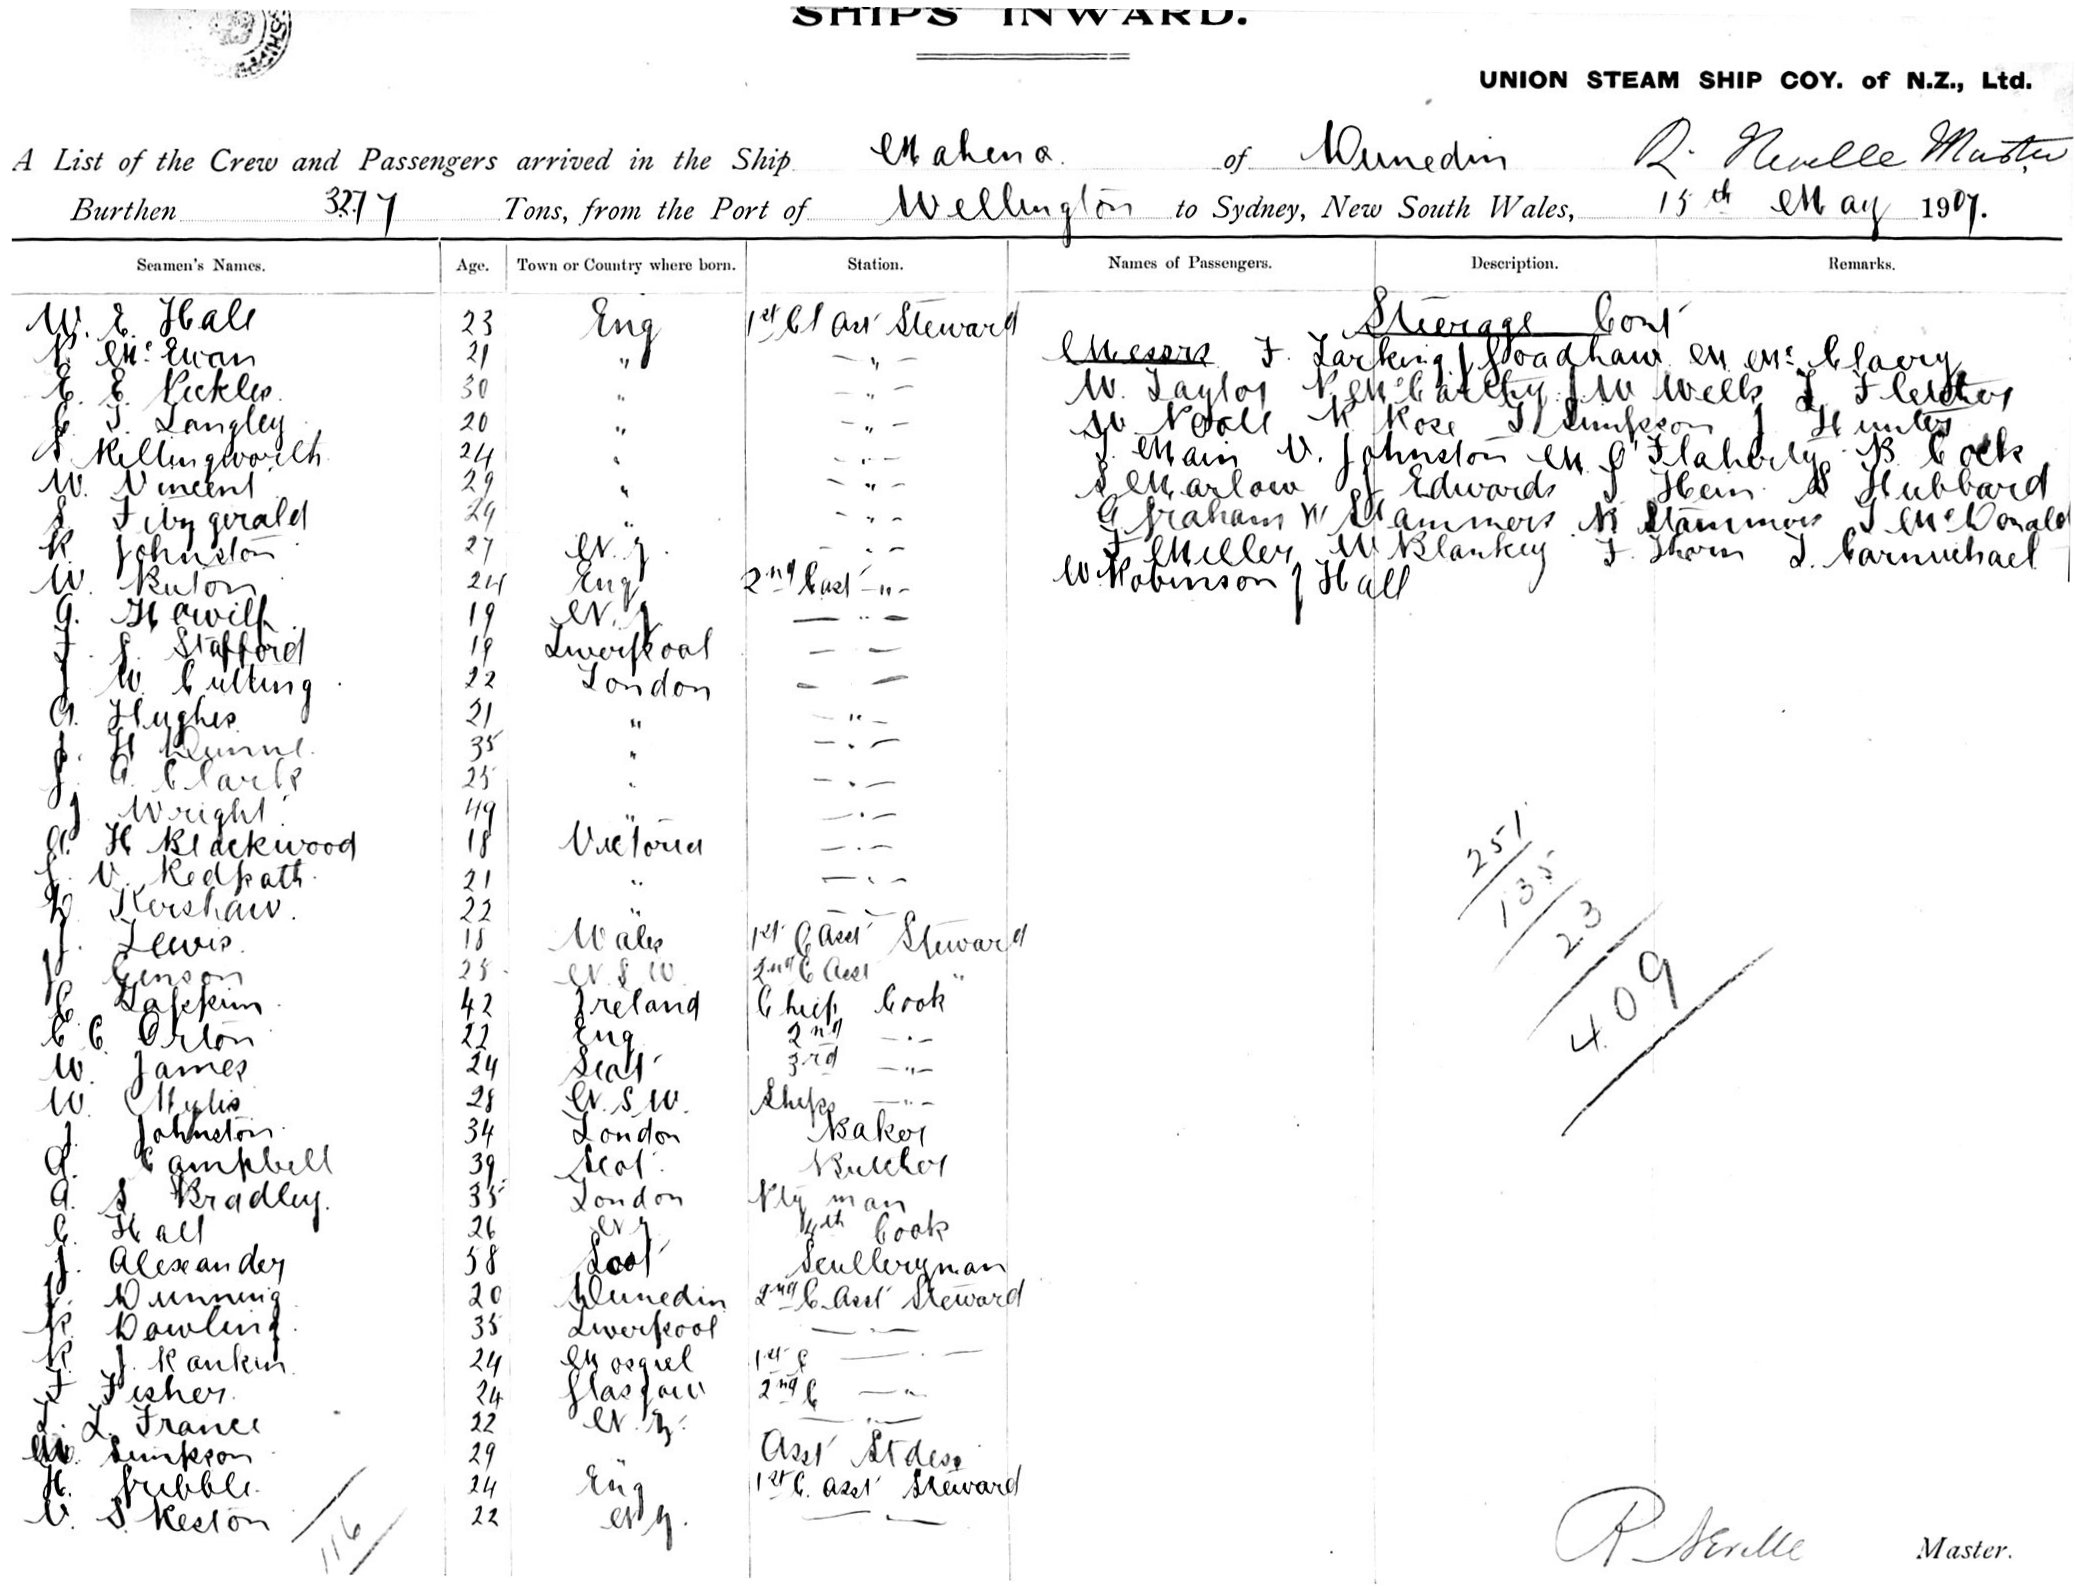 SHIPS INWARD.
UNION STEAM SHIP COY. of N.Z., Ltd.
A List of the Crew and Passengers arrived in the Ship Maheno of Dunedin R. Neville Master
Burthen 3277 Tons, from the Port of Wellington to Sydney, New South Wales, 15th May 1907.
Seamen's Names. Age. Town or Country where born. Station. Names of Passengers. Description. Remarks.
W. E. Hall 23 Eng 1st Cl Asst Steward Steerage Cont
McEwan 21 " — " — Messrs F. Larking J Goadham M McClavry
E. E. Pickles 30 " — " — W. Taylor P. McCarthy J W Wells T Fletcher
C. T. Langley 20 " — " — W Neall R Rose T Simpson J Hunter
S Killingworth 24 " — " — T. Main V. Johnston M O'Flaherty B. Cock
W. Vincent 29 " — " — S Marlow J Edwards T Hern S Hubbard
S Fitzgerald 24 " — " — A Graham W Stammers N Stammers T McDonald
R Johnston 27 N.Z. — " — F Miller W Blankey F. Thorn T. Carmichael
W. Buton 24 Eng 2nd C asst — " — W. Robinson J Hall
G. Hewitt 19 N.Z — " —
F. S. Stafford 19 Liverpool — —
J W Cutting 22 London — —
A. Hughes 21 " — " —
J. H Dunne 35 " — " —
J. A. Clark 25 " — " —
J Wright 49 " — " —
A. H Blackwood 18 Victoria — " —
J. V. Redpath 21 " — " —
D Kershaw 22 " — —
J. Lewis 18 Wales 1st C Asst Steward
J Ginson 25 N.S.W. 2nd C Asst "
C Tappin 42 Ireland Chief Cook
C C. Orton 22 Eng 2nd — " —
W. James 24 Scot 3rd — " —
W. Mylis 28 N.S.W. Ships — " —
J. Johnston 34 London Baker
A. Campbell 39 Scot Butcher
A. S Bradley 35 London Ply man
C. Hall 26 N Z 4th Cook
J. Alexander 58 Scot Scullery man
J. Dunning 20 Dunedin 2nd C. Asst Steward
P. Dowling 35 Liverpool — " —
R J. Rankin 24 Mosgiel 1st C — " —
F Fisher 24 Glasgow 2nd C — " —
L. L. France 22 N. Z. — " —
M. Simpson 29 " Asst Stdess
H. Gribble 24 Eng 1st C. Asst Steward
V. S. Keston 22 N Z. — " —
116
251
135
23
409
R Neville Master.